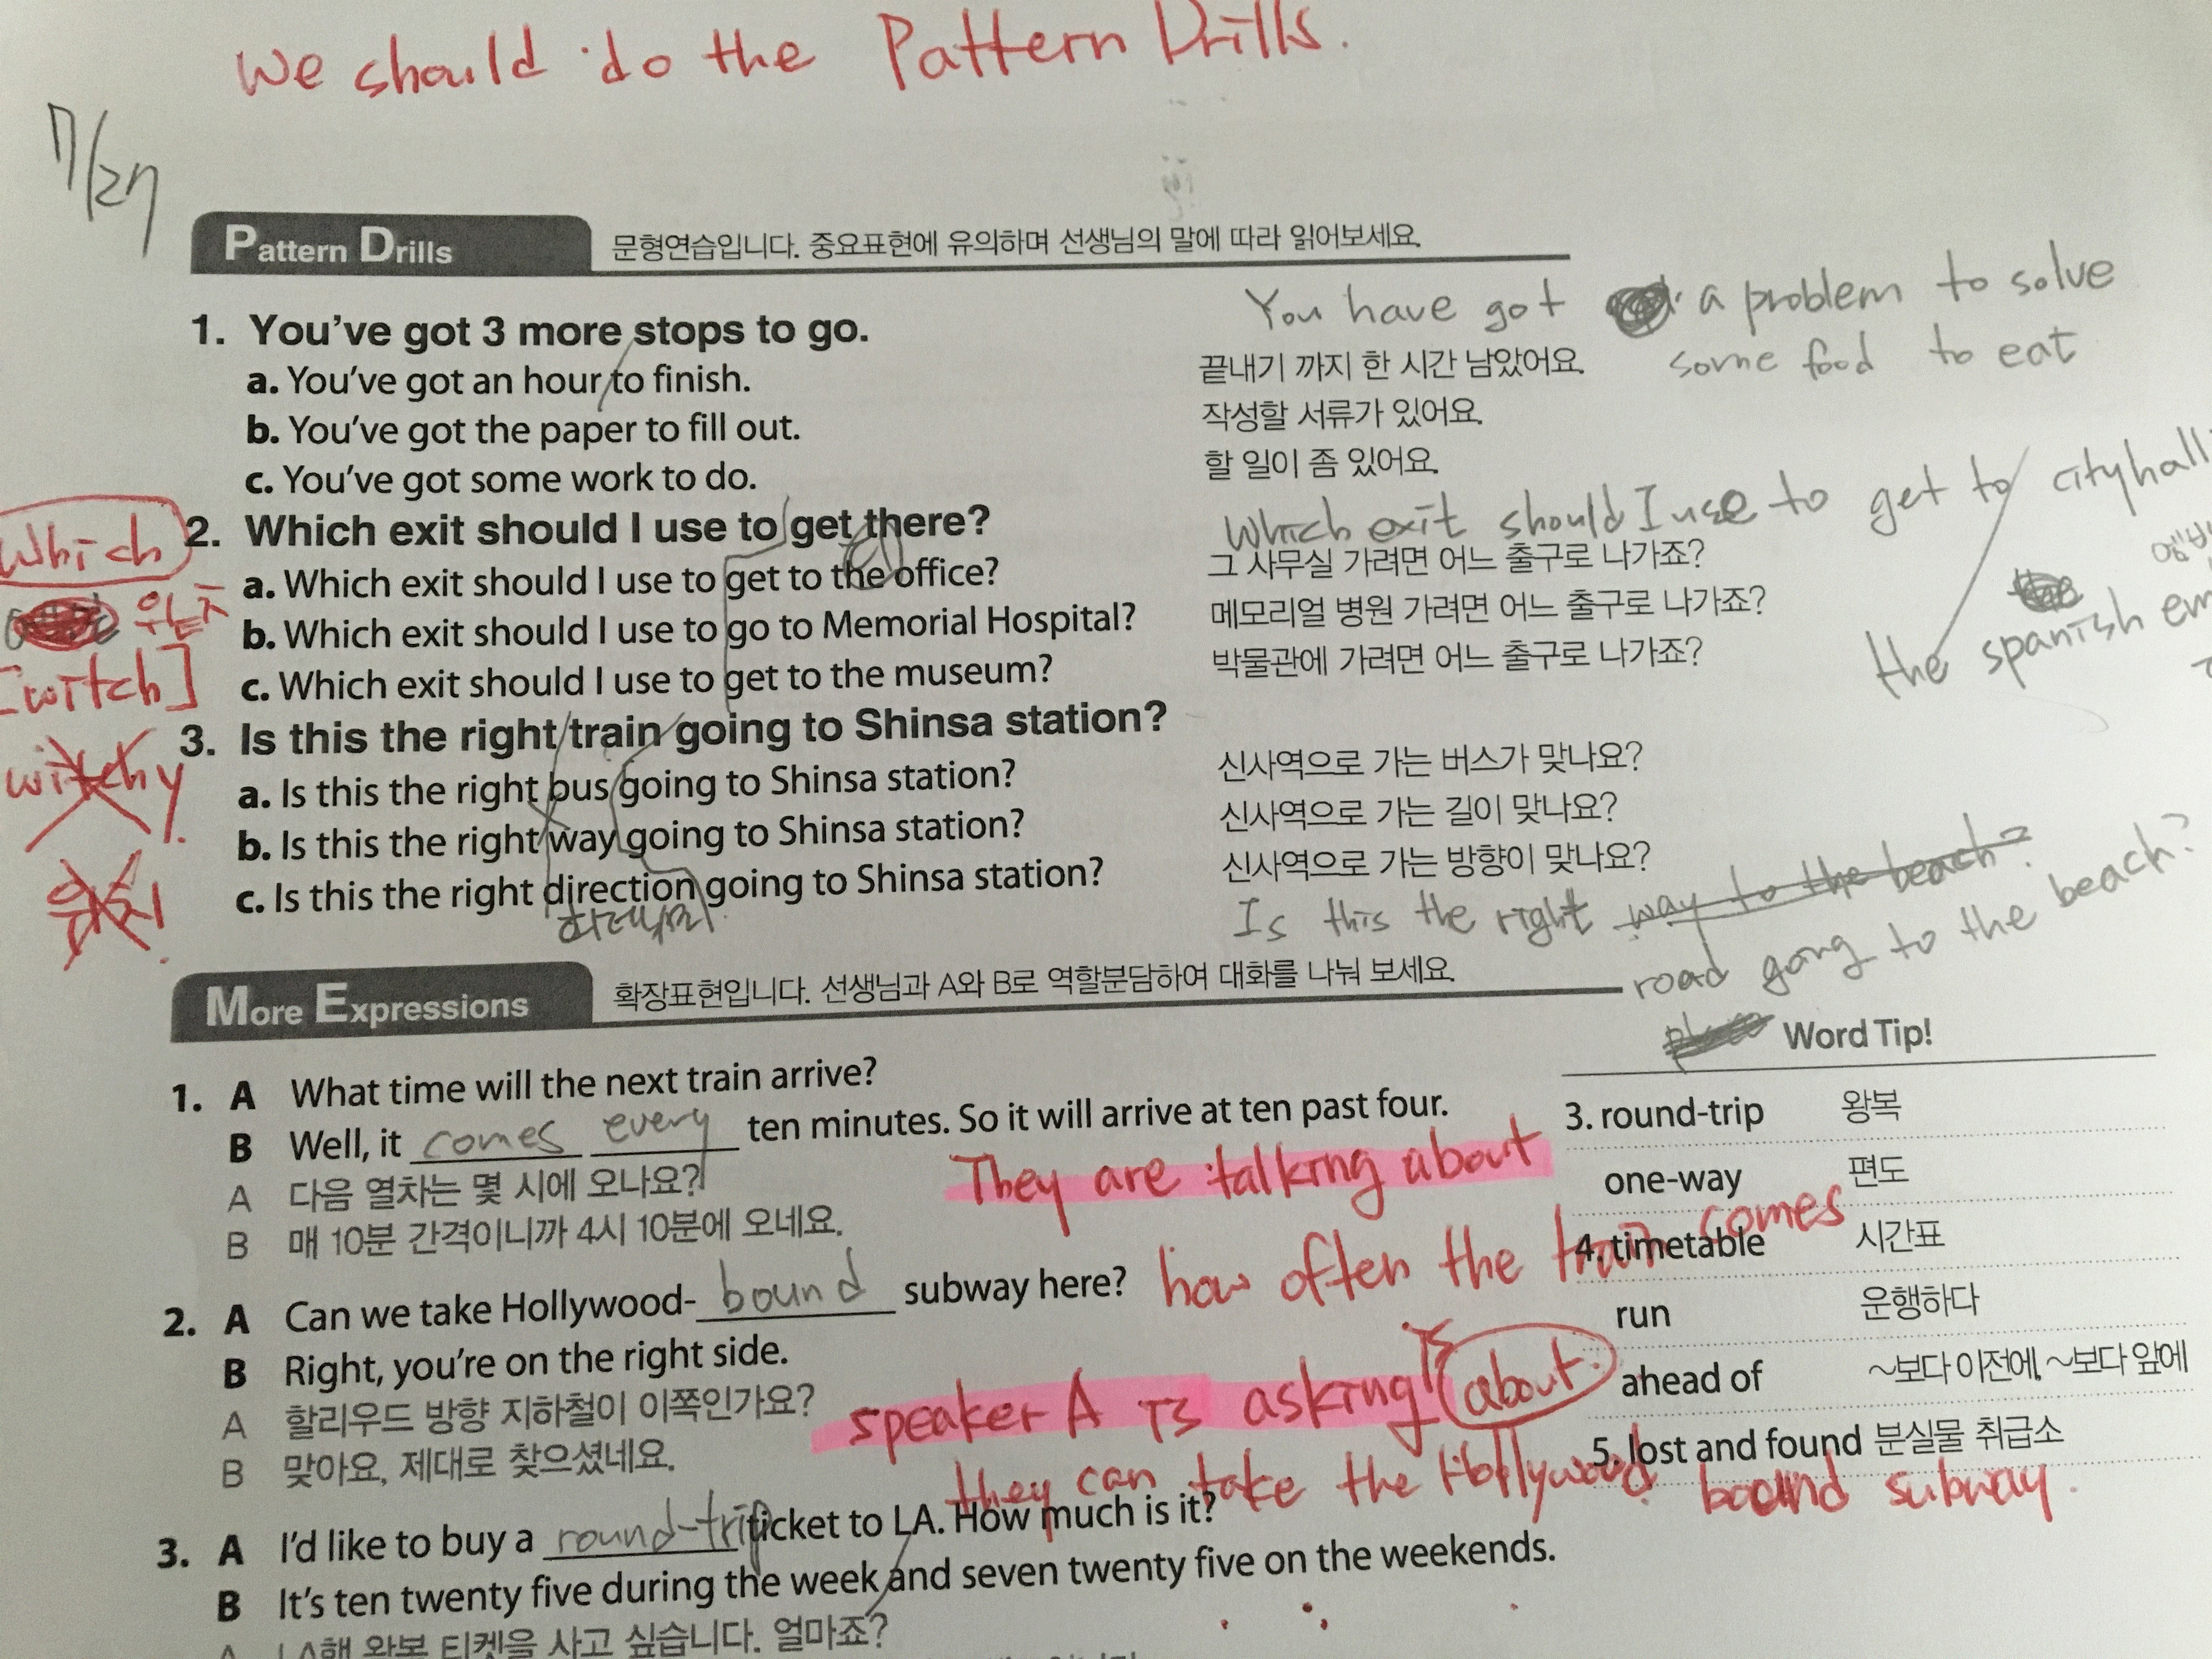 We should do the Pattern Drills.
7/27
Pattern Drills 문형연습입니다. 중요표현에 유의하며 선생님의 말에 따라 읽어보세요.
You have got a problem to solve
some food to eat
1. You've got 3 more stops to go.
a. You've got an hour to finish. 끝내기 까지 한 시간 남았어요.
b. You've got the paper to fill out. 작성할 서류가 있어요.
c. You've got some work to do. 할 일이 좀 있어요.
Which
[witch]
witchy
2. Which exit should I use to get there?
Which exit should I use to get to cityhall
the spanish
a. Which exit should I use to get to the office? 그 사무실 가려면 어느 출구로 나가죠?
b. Which exit should I use to go to Memorial Hospital? 메모리얼 병원 가려면 어느 출구로 나가죠?
c. Which exit should I use to get to the museum? 박물관에 가려면 어느 출구로 나가죠?
3. Is this the right train going to Shinsa station?
a. Is this the right bus going to Shinsa station? 신사역으로 가는 버스가 맞나요?
b. Is this the right way going to Shinsa station? 신사역으로 가는 길이 맞나요?
c. Is this the right direction going to Shinsa station? 신사역으로 가는 방향이 맞나요?
Is this the right way to the beach?
road going to the beach?
More Expressions 확장표현입니다. 선생님과 A와 B로 역할분담하여 대화를 나눠 보세요.
1. A What time will the next train arrive?
B Well, it comes every ten minutes. So it will arrive at ten past four.
A 다음 열차는 몇 시에 오나요?
B 매 10분 간격이니까 4시 10분에 오네요.
They are talking about
how often the train comes
2. A Can we take Hollywood-bound subway here?
B Right, you're on the right side.
A 할리우드 방향 지하철이 이쪽인가요?
B 맞아요, 제대로 찾으셨네요.
speaker A is asking if about
they can take the Hollywood bound subway.
3. A I'd like to buy a round-trip ticket to LA. How much is it?
B It's ten twenty five during the week and seven twenty five on the weekends.
A LA행 왕복 티켓을 사고 싶습니다. 얼마죠?
Word Tip!
3. round-trip 왕복
one-way 편도
4. timetable 시간표
run 운행하다
ahead of ~보다 이전에, ~보다 앞에
5. lost and found 분실물 취급소